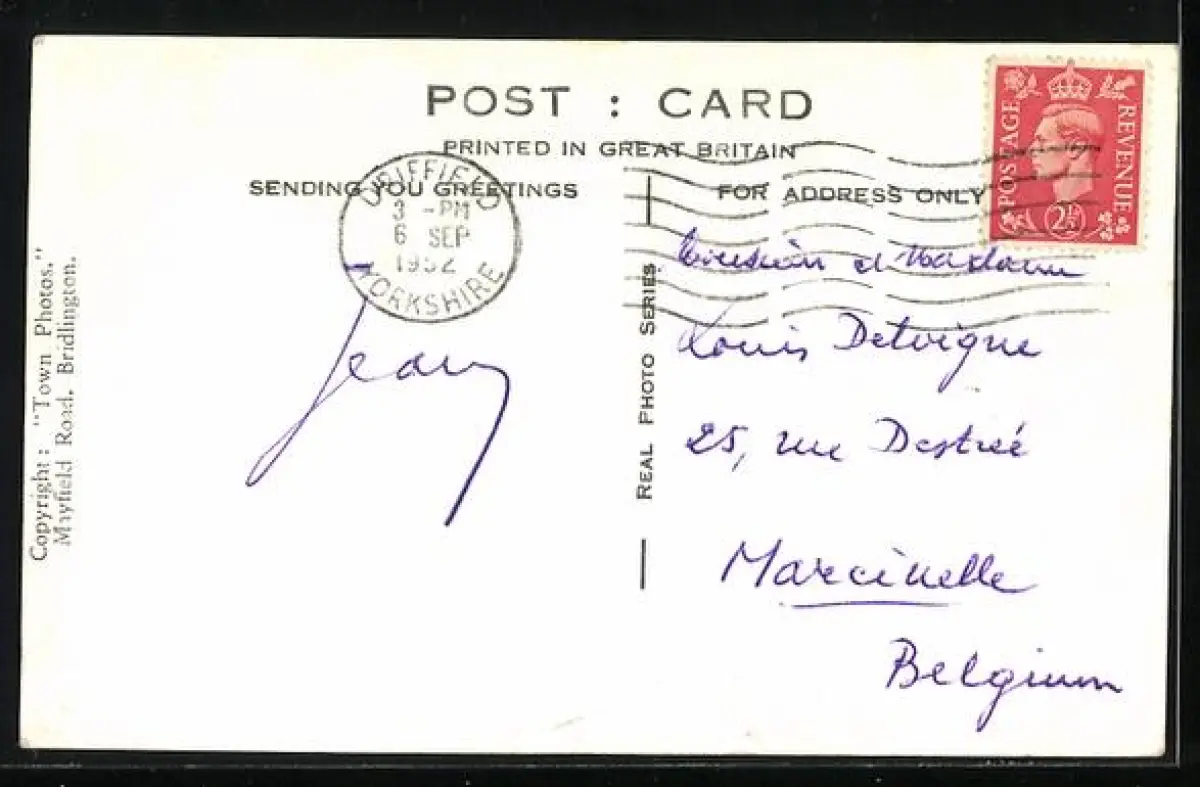 POST : CARD
PRINTED IN GREAT BRITAIN
SENDING YOU GREETINGS
FOR ADDRESS ONLY
POSTAGE
REVENUE
2½
DRIFFIELD
3 - PM
6 SEP
1952
YORKSHIRE
Copyright: "Town Photos,"
Mayfield Road, Bridlington.
REAL PHOTO SERIES
Jean
Madame
Louis Detvigne
25, rue Destrée
Marcinelle
Belgium